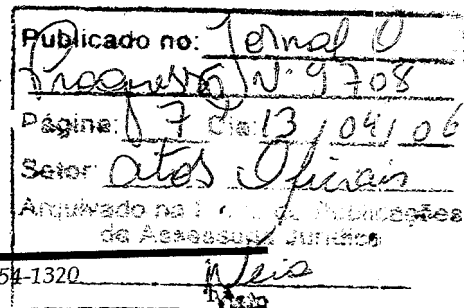 Publicado no: Jornal O
Progresso Nº 9708
Página: 17 Dia: 13 / 04 / 06
Setor: Atos Oficiais
Arquivado na Publicações
da Assessoria Jurídica
54-1320
Neia